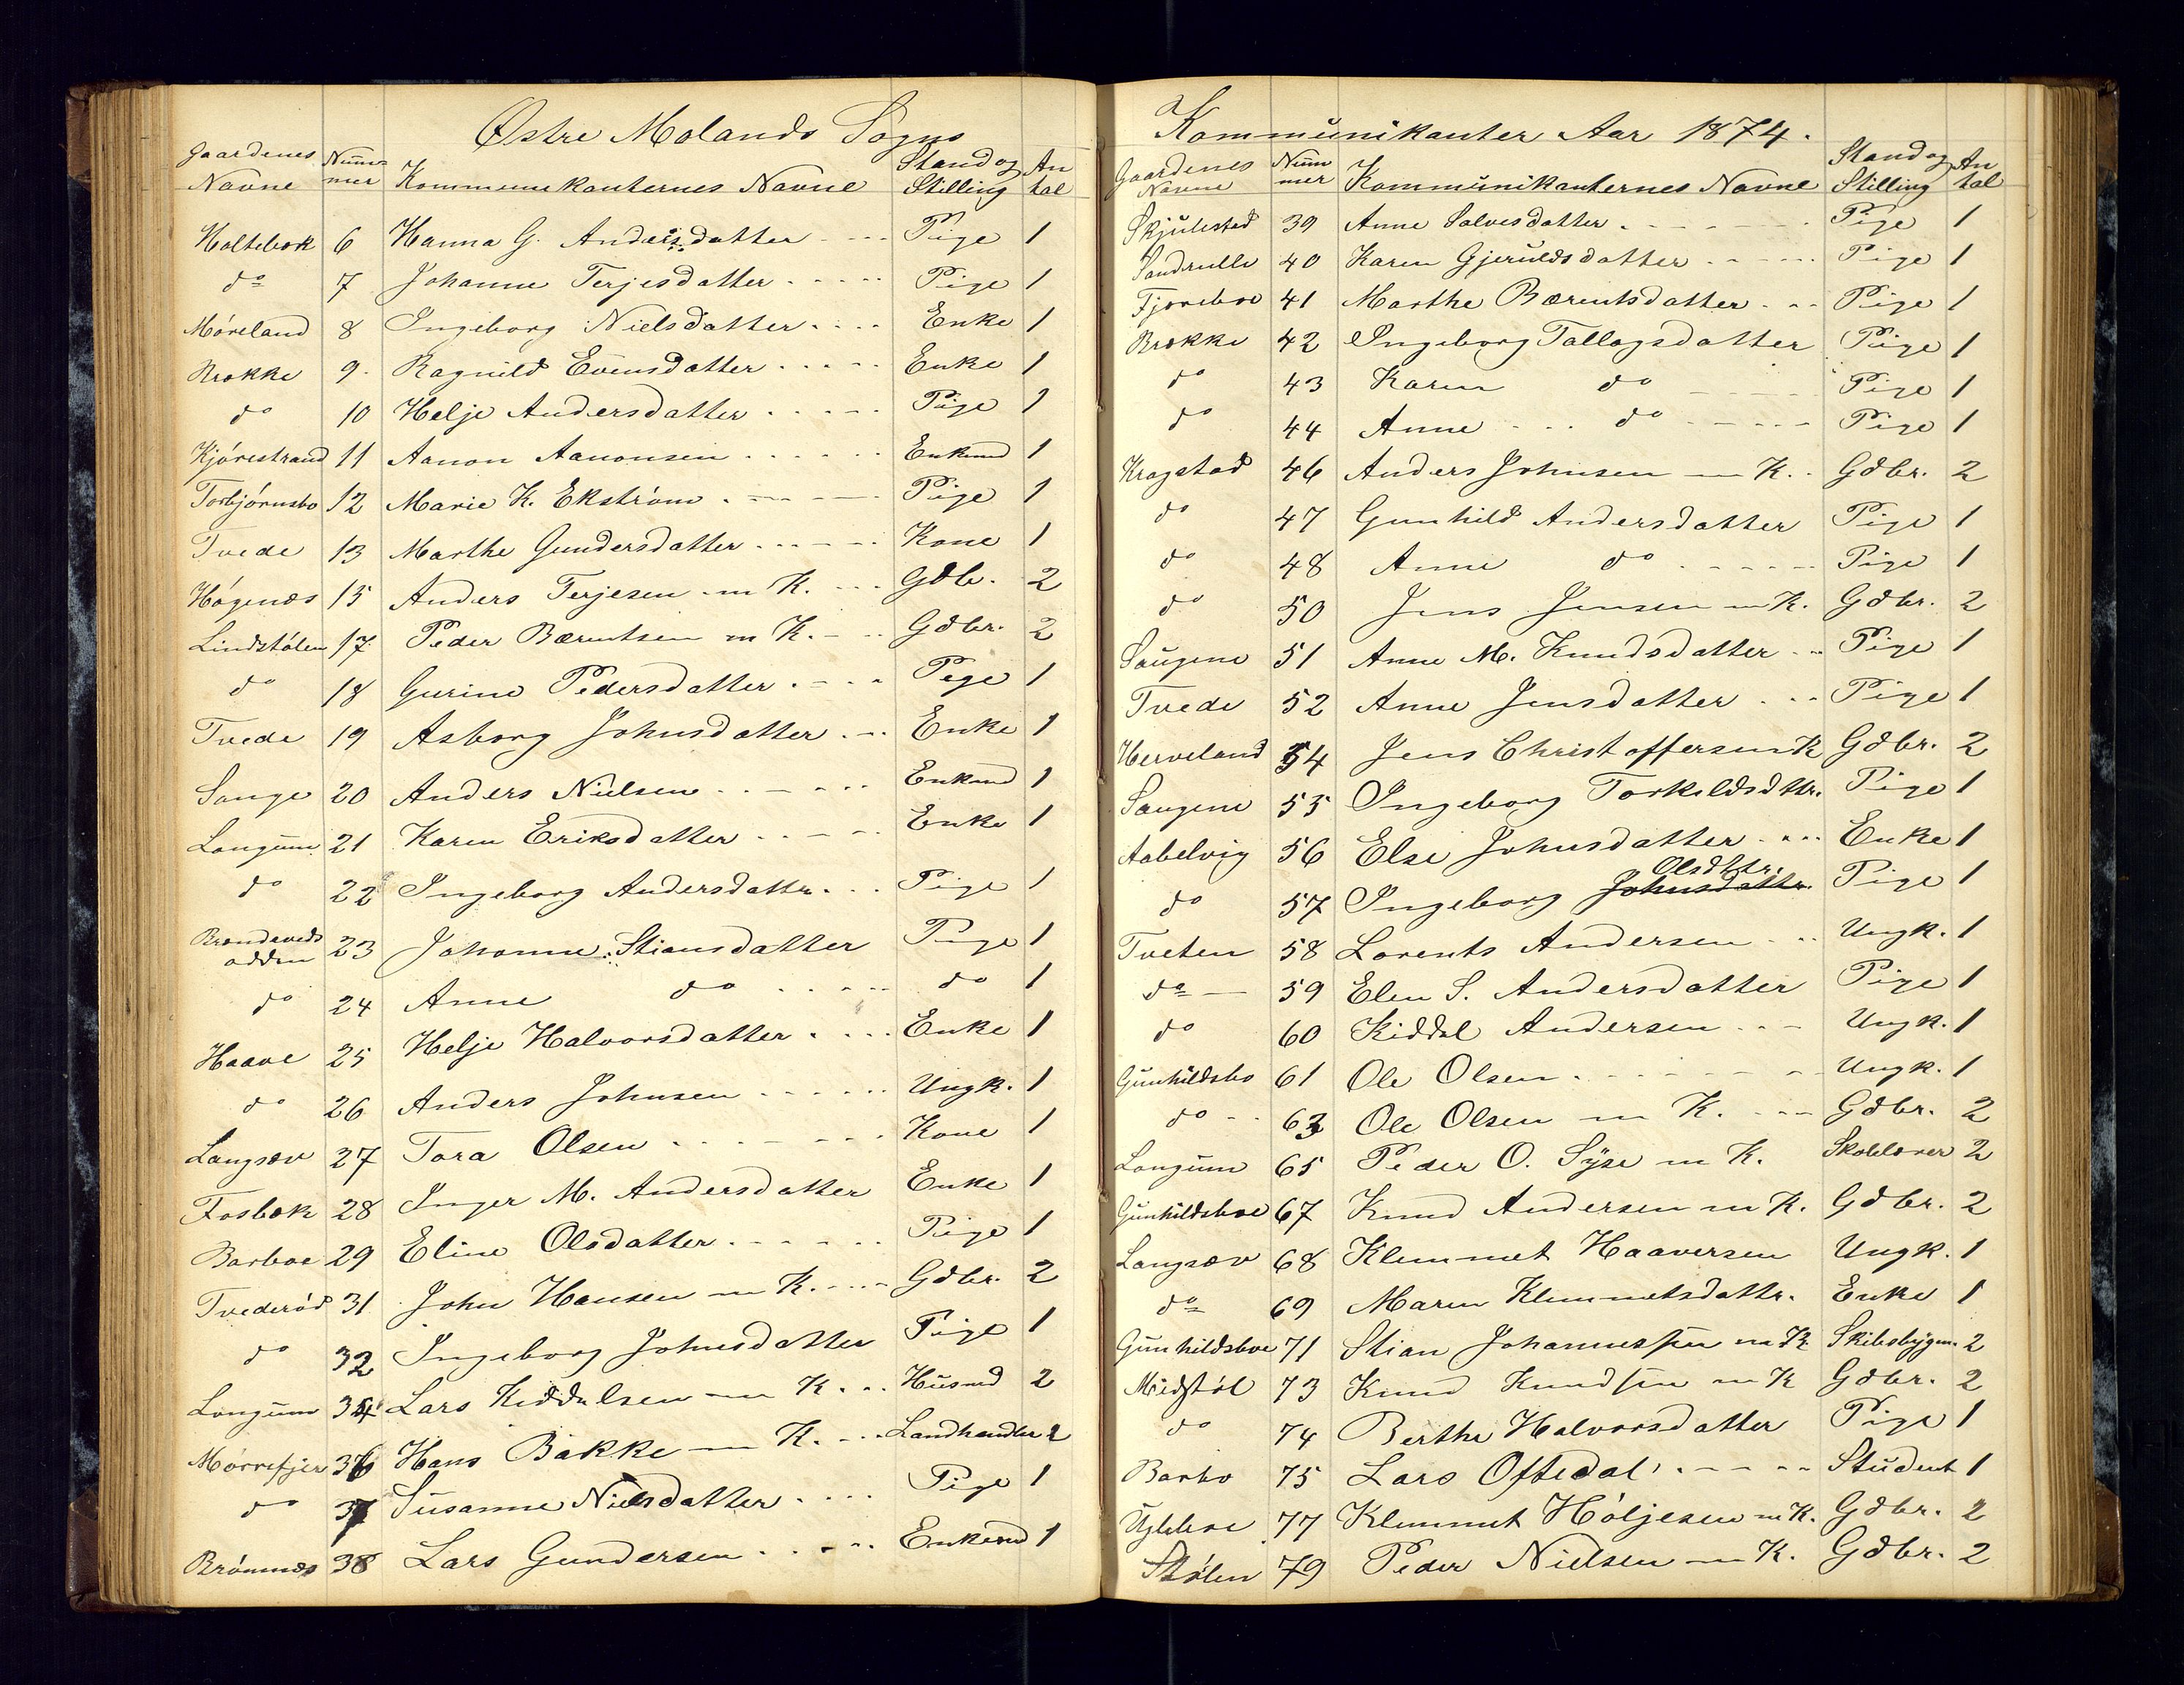 Østre Molands Sogns
Gaardenes Navne Nummer Kommunikanternes Navne Stand og Stilling Antal
Holtebæk 6 Hanna G. Andersdatter Pige 1
do 7 Johanne Terjesdatter Pige 1
Møreland 8 Ingeborg Nielsdatter Enke 1
Brække 9. Ragnild Evensdatter Enke 1
do 10 Helje Andersdatter Pige 1
Kjørestrand 11 Aanon Aanonsen Enkemd 1
Torbjørnsbo 12 Marie K. Ekstrøm Pige 1
Tvede 13 Marthe Gundersdatter Kone 1
Høgenæs 15 Anders Terjesen m K. Gdb. 2
Lindstølen 17 Peder Bærentsen m K. Gdbr. 2
do 18 Gurine Pedersdatter Pige 1
Tvede 19 Asborg Johnsdatter Enke 1
Sange 20 Anders Nielsen Enkemd 1
Longum 21 Karen Eriksdatter Enke 1
do 22 Ingeborg Andersdattr. Pige 1
Brændeveds odden 23 Johanne Stiansdatter Pige 1
do 24 Anne do do 1
Haave 25 Helje Halvorsdatter Enke 1
do 26 Anders Johnsen Ungk. 1
Langsæv 27 Tora Olsen Kone 1
Fosbæk 28 Inger M. Andersdatter Enke 1
Barboe 29 Eline Olsdatter Pige 1
Tvederød 31 John Hansen m K. Gdbr. 2
do 32 Ingeborg Johnsdatter Pige 1
Longum 34 Lars Kiddelsen m K. Husmd 2
Mørrefjær 36 Hans Bakke m K. Landhandler 2
do 37 Susanne Nielsdatter Pige 1
Brømnæs 38 Lars Gundersen Enkemd 1
Kommunikanter Aar 1874.
Gaardenes Navne Nummer Kommunikanternes Navne Stand og Stilling Antal
Skjulestad 39 Anne Salvesdatter Pige 1
40 Karen Gjeruldsdatter Pige 1
Fjæreboe 41 Marthe Bærentsdatter Pige 1
Brække 42 Ingeborg Tallagsdatter Pige 1
do 43 Karen do Pige 1
do 44 Anne do Pige 1
Kragstad 46 Anders Johnsen m K. Gdbr. 2
do 47 Gunhild Andersdatter Pige 1
do 48 Anne do Pige 1
do 50 Jens Jensen m K. Gdbr. 2
Saugene 51 Anne M. Knudsdatter Pige 1
Tvede 52 Anne Jensdatter Pige 1
Herveland 54 Jens Christoffersen m K Gdbr. 2
Saugene 55 Ingeborg Torkeldsdttr. Pige 1
Aabelvig 56 Else Johnsdatter Enke 1
do 57 Ingeborg Johnsdatter Olsdttr. Pige 1
Tveten 58 Lorents Andersen Ungk. 1
do 59 Elen S. Andersdatter Pige 1
do 60 Kiddel Andersen Ungk. 1
Gunhildsbo 61 Ole Olsen Ungk. 1
do 63 Ole Olsen m K. Gdbr. 2
Longum 65 Peder O. Syse m K. Skolelærer 2
Gunhildsboe 67 Knud Andersen m K. Gdbr. 2
Langsæv 68 Klemmet Haaversen Ungk. 1
do 69 Maren Klemmetsdattr. Enke 1
Gunhildsboe 71 Stian Johannessen m K Skibsbygm. 2
Midstøl 73 Knud Knudsen m K Gdbr. 2
do 74 Berthe Halvorsdatter Pige 1
Barbo 75 Lars Oftedal Student 1
Ugleboe 77 Klemmet Høljesen m K. Gdbr. 2
Stølen 79 Peder Nielsen m K. Gdbr. 2